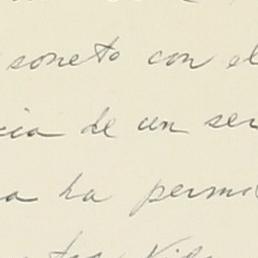 soneto con el
cia de un ser
a ha permi